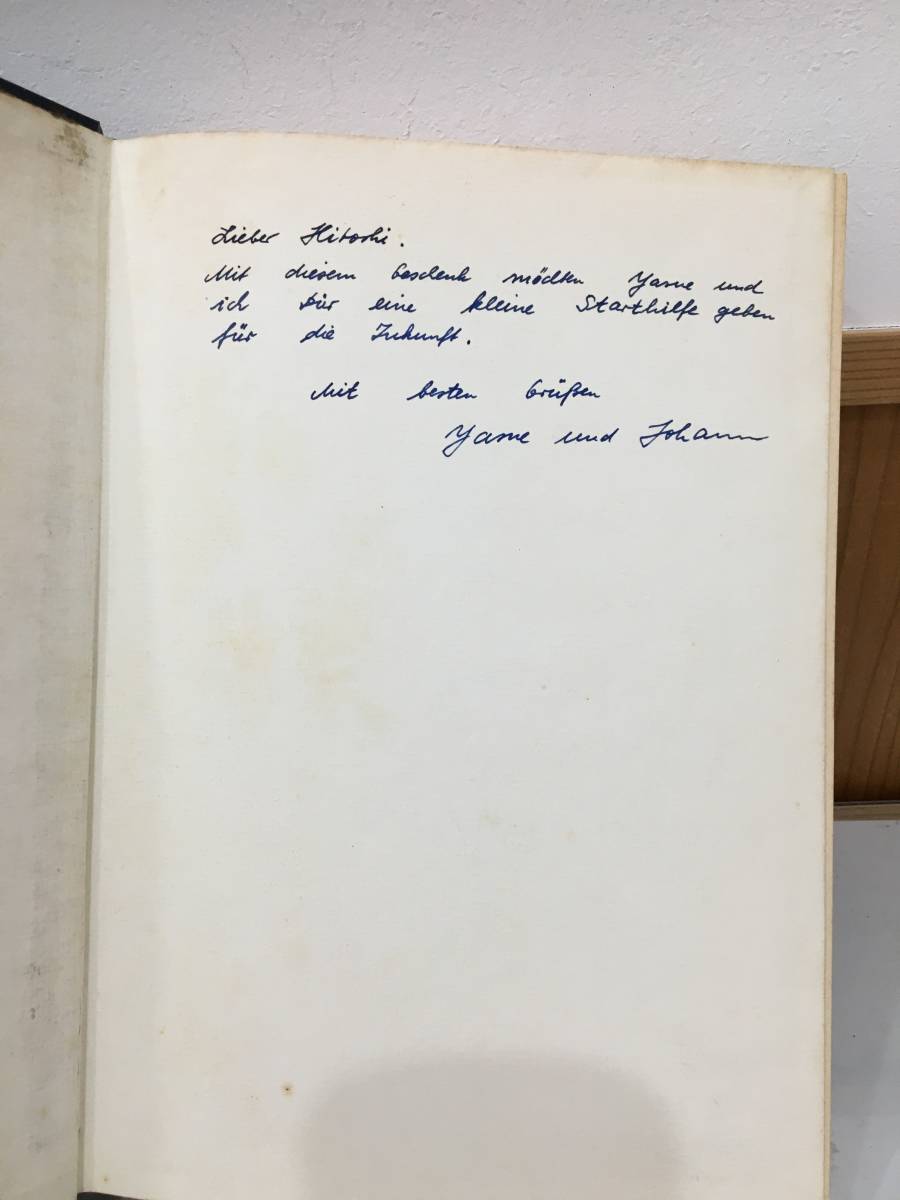 Lieber Hitoshi.
Mit diesem Geschenk möchten Yasue und
ich Dir eine kleine Starthilfe geben
für die Zukunft.
Mit besten Grüßen
Yasue und Johann